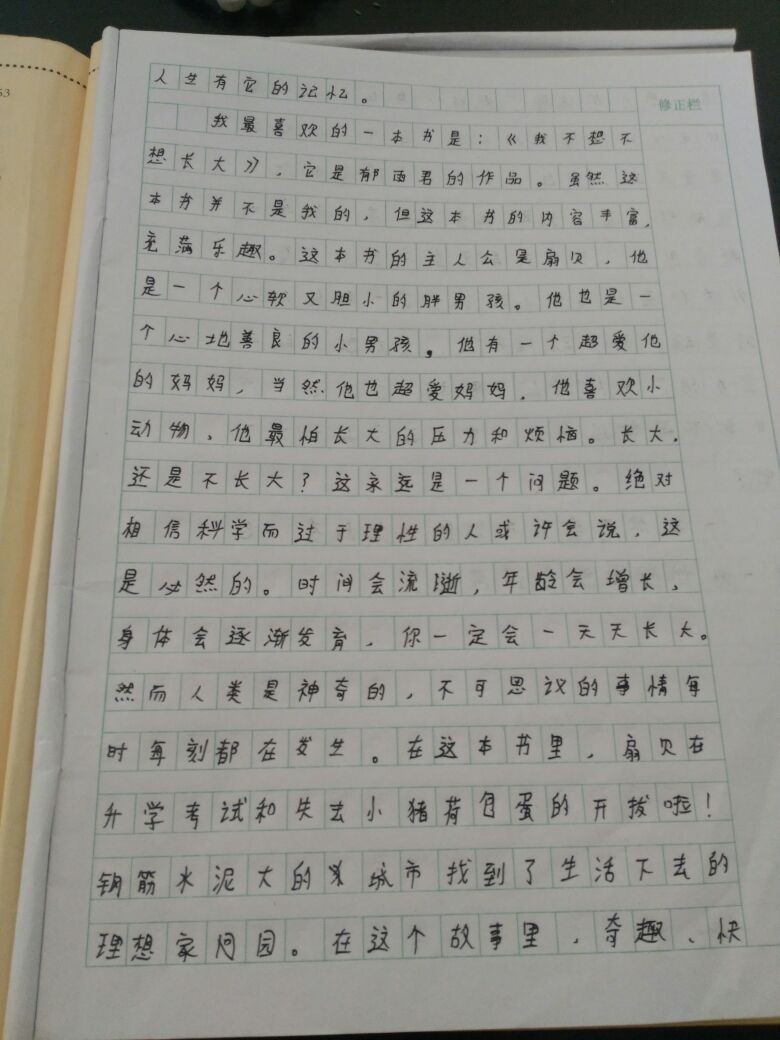 53
修正栏
人生有它的记忆。
我最喜欢的一本书是:《我不想不
想长大》,它是郁雨君的作品。虽然这
本书并不是我的,但这本书的内容丰富,
充满乐趣。这本书的主人公是扇贝,他
是一个心软又胆小的胖男孩。他也是一
个心地善良的小男孩。他有一个超爱他
的妈妈,当然他也超爱妈妈。他喜欢小
动物、他最怕长大的压力和烦恼。长大,
还是不长大?这永远是一个问题。绝对
相信科学而过于理性的人或许会说,这
是必然的。时间会流逝,年龄会增长,
身体会逐渐发育,你一定会一天天长大。
然而人类是神奇的,不可思议的事情每
时每刻都在发生。在这本书里,扇贝在
升学考试和失去小猪荷包蛋的开拔啦!
钢筋水泥大的城市找到了生活下去的
理想家园。在这个故事里,奇趣、快